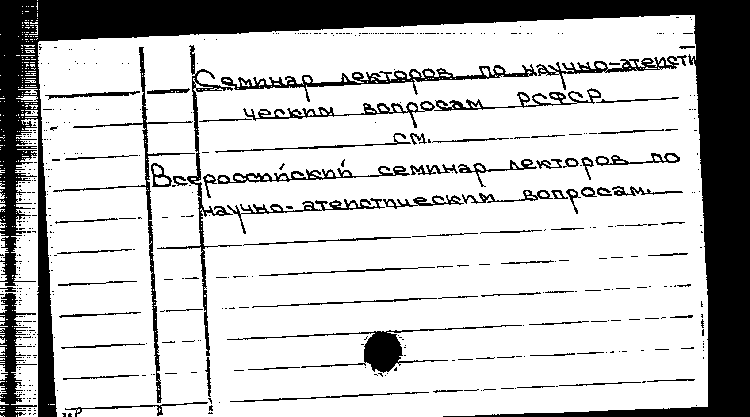 Семинар лекторов по научно-атеисти
ческим вопросам РСФСР.
см.
Всероссийский семинар лекторов по
научно-атеистическим вопросам.